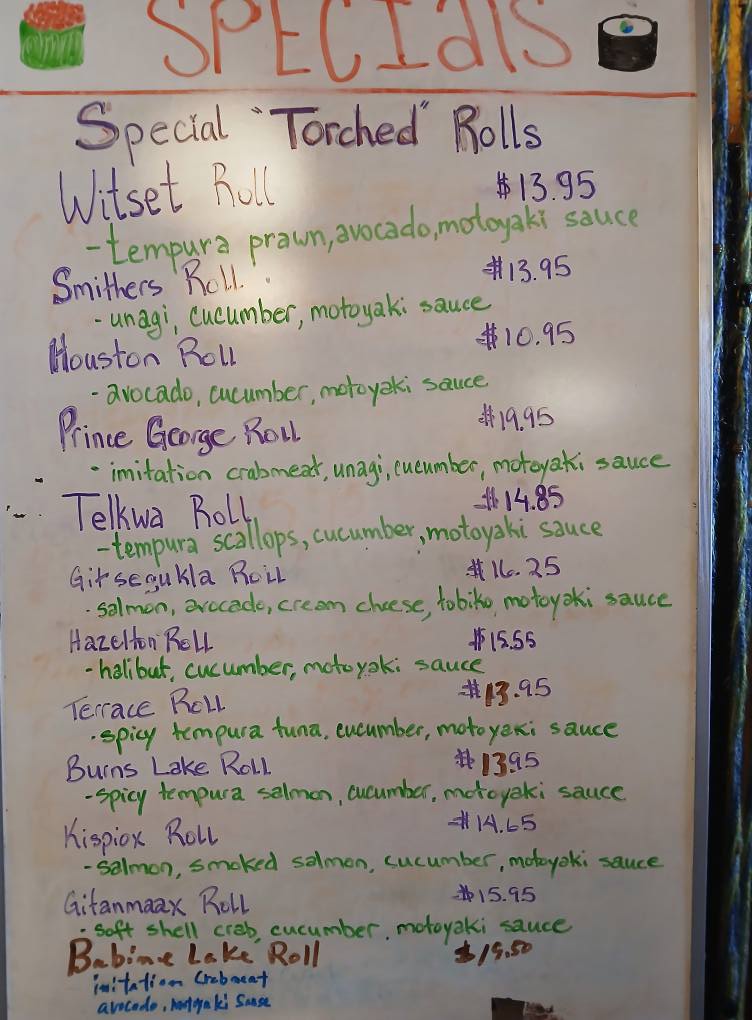 SPECIAlS
Special "Torched" Rolls
Witset Roll $13.95
-tempura prawn, avocado, motoyaki sauce
Smithers Roll $13.95
- unagi, cucumber, motoyaki sauce
Houston Roll $10.95
- avocado, cucumber, motoyaki sauce
Prince George Roll $19.95
- imitation crabmeat, unagi, cucumber, motoyaki sauce
Telkwa Roll $14.85
-tempura scallops, cucumber, motoyaki sauce
Gitsegukla Roll $16.25
- salmon, avocado, cream cheese, tobiko, motoyaki sauce
Hazelton Roll $15.55
-halibut, cucumber, motoyaki sauce
Terrace Roll $13.95
- spicy tempura tuna, cucumber, motoyaki sauce
Burns Lake Roll $13.95
-spicy tempura salmon, cucumber, motoyaki sauce
Kispiox Roll $14.65
-salmon, smoked salmon, cucumber, motoyaki sauce
Gitanmaax Roll $15.95
- soft shell crab, cucumber, motoyaki sauce
Babine Lake Roll
imitation Crabmeat
avocado, Motoyaki Sause